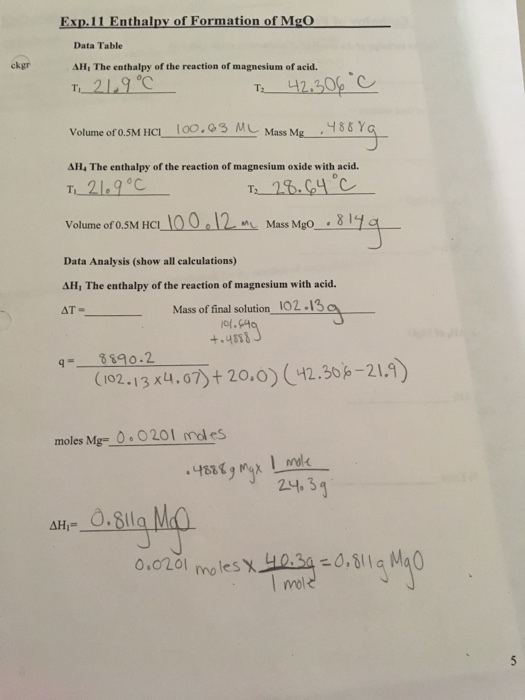 Exp.11 Enthalpy of Formation of MgO
Data Table
ckgr
ΔH₁ The enthalpy of the reaction of magnesium of acid.
T₁ 21.9°C T₂ 42.306°C
Volume of 0.5M HCl 100.03 ML Mass Mg .4888g
ΔH₄ The enthalpy of the reaction of magnesium oxide with acid.
T₁ 21.9°C T₂ 28.64°C
Volume of 0.5M HCl 100.12 mL Mass MgO .814g
Data Analysis (show all calculations)
ΔH₁ The enthalpy of the reaction of magnesium with acid.
ΔT = Mass of final solution 102.13g
101.64g
+.4888
q = 8890.2
(102.13 x4.07)+20.0)(42.306-21.9)
moles Mg= 0.0201 moles
.4888g Mg x 1 mole
24.3g
ΔH₁= 0.811g MgO
0.0201 moles x 40.3g = 0.811g MgO
1 mole
5